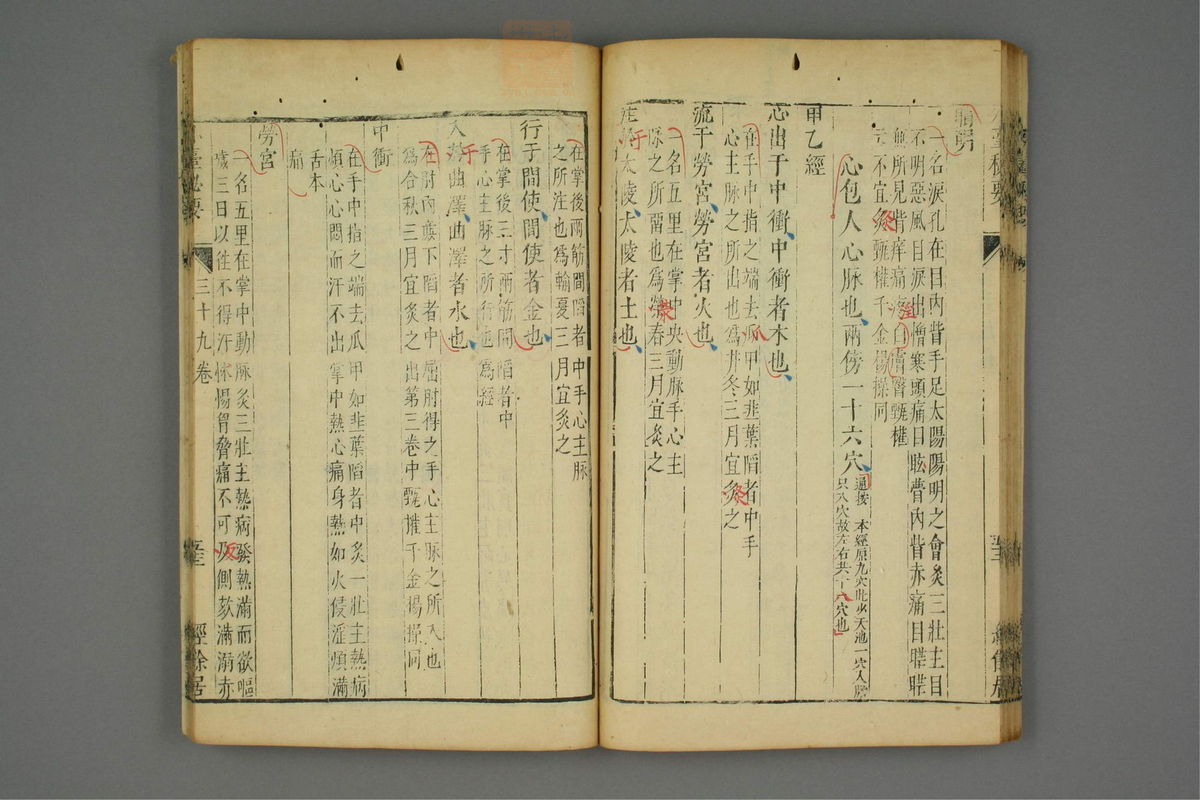 睛明
一名淚孔在目內眥手足太陽陽明之會灸三壯主目
不明惡風目淚出憎寒頭痛目眩瞢內眥赤痛目䀮䀮
無所見眥痒痛淫白膚翳甄權
云不宜灸甄權千金楊操同
心包人心脉也兩傍一十六穴
通按 本經原九穴此少天池一穴入膽
只八穴故左右共十六穴也
甲乙經
心出于中衝中衝者木也
在手中指之端去爪甲如韭葉陷者中手
心主脉之所出也爲井冬三月宜灸之
流于勞宮勞宮者火也
一名五里在掌中央動脉手心主
脉之所畱也爲滎春三月宜灸之
注于大陵大陵者土也
在掌後兩筋間陷者中手心主脉
之所注也爲輸夏三月宜灸之
行于間使間使者金也
在掌後三寸兩筋間陷者中
手心主脉之所行也爲經
入于曲澤曲澤者水也
在肘內廉下陷者中屈肘得之手心主脉之所入也
爲合秋三月宜灸之出第三卷中甄權千金楊操同
中衝
在手中指之端去爪甲如韭葉陷者中灸一壯主熱病
煩心心悶而汗不出掌中熱心痛身熱如火侵淫煩滿
舌本
痛
勞宮
一名五里在掌中動脉灸三壯主熱病發熱滿而欲嘔
歲三日以徃不得汗怵惕胷脅痛不可反側欬滿溺赤
三十九卷
經餘居